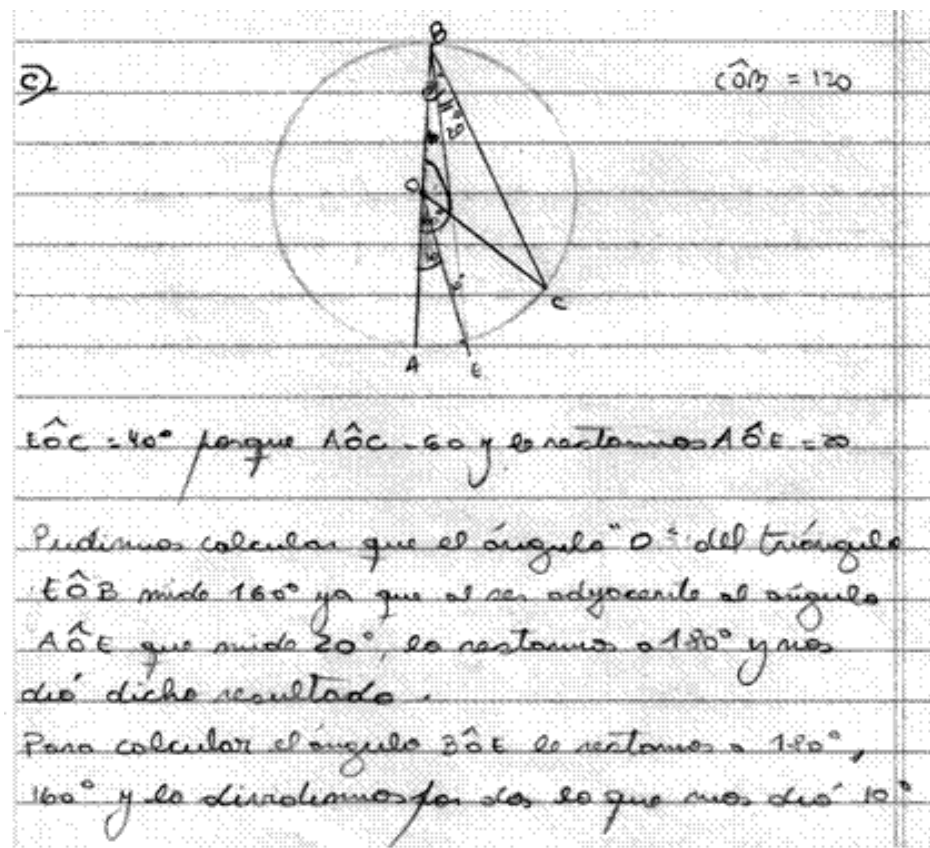 B
C)
CÔB = 120
O
C
A
E
EÔC = 40° porque AÔC = 60 y le restamos AÔE = 20
Pudimos calcular que el ángulo "O" del triángulo
EÔB mide 160° ya que al ser adyacente al ángulo
AÔE que mide 20°, lo restamos a 180° y nos
dió dicho resultado.
Para calcular el ángulo BÔE le restamos a 180°,
160° y lo dividimos por dos lo que nos dió 10°